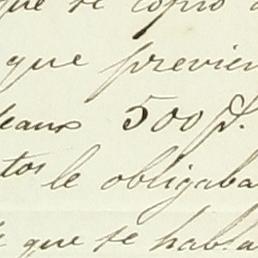 que se copió
que previen
eaux 500 f.
tos le obligaba
que se habla